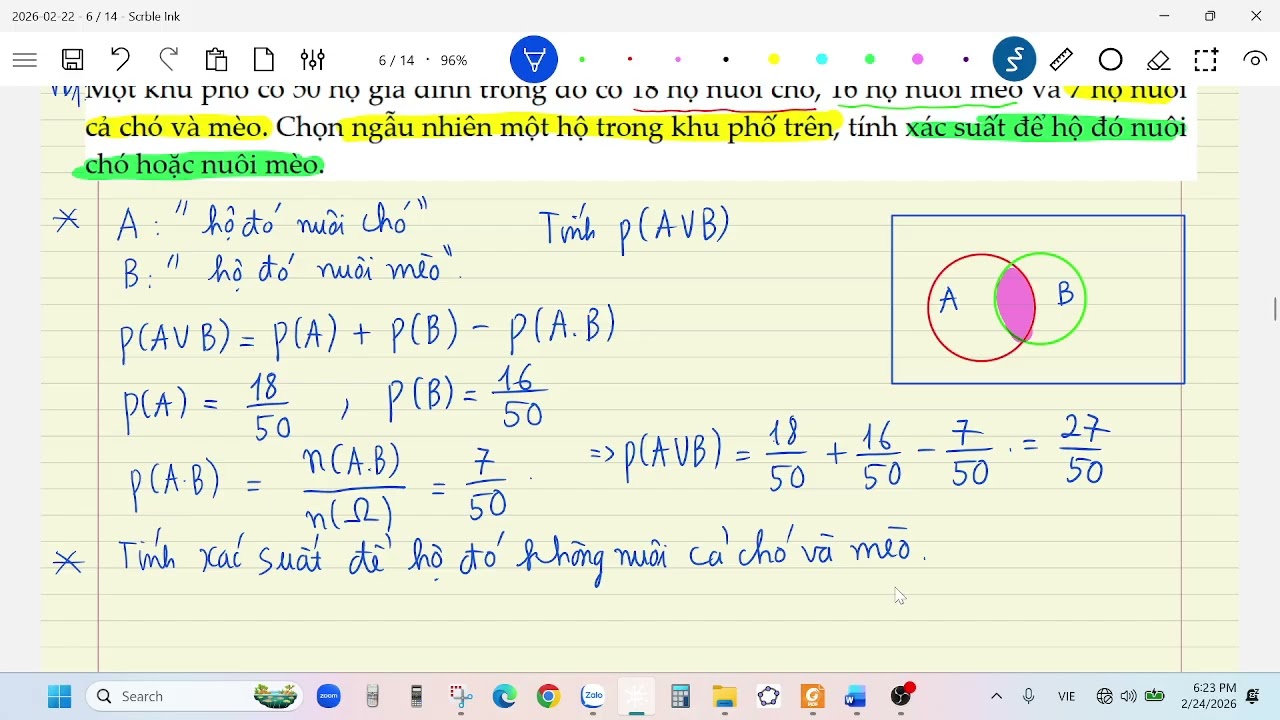 2026-02-22 - 6 / 14 - Scrble Ink
6 / 14 · 96%
Một khu phố có 50 hộ gia đình trong đó có 18 hộ nuôi chó, 16 hộ nuôi mèo và 7 hộ nuôi
cả chó và mèo. Chọn ngẫu nhiên một hộ trong khu phố trên, tính xác suất để hộ đó nuôi
chó hoặc nuôi mèo.
* A : " hộ đó nuôi chó" Tính P(A∪B)
B : " hộ đó nuôi mèo".
A B
P(A∪B) = P(A) + P(B) - P(A.B)
P(A) = 18/50 , P(B) = 16/50
P(A.B) = n(A.B)/n(Ω) = 7/50 . => P(A∪B) = 18/50 + 16/50 - 7/50 . = 27/50
* Tính xác suất để hộ đó không nuôi cả chó và mèo.
Search zoom Zalo VIE 6:23 PM
2/24/2026